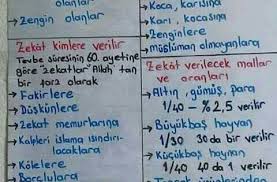 olanlar
→ Zengin olanlar
Zekât kimlere verilir
Tevbe sûresinin 60. ayetine
göre "zekatlar Allah' tan
bir farz olarak
→ Fakirlere
→ Düşkünlere
→ Zekat memurlarına
→ Kalpleri islama ısındırı-
lacaklara
→ Kölelere
→ Borçlulara
→ Koca, karısına
→ Karı, kocasına
→ Zenginlere
→ Müslüman olmayanlara
Zekât verilecek mallar
ve oranları
→ Altın, gümüş, para
1/40 - % 2,5 verilir
→ Büyükbaş hayvan
1/30 30 da bir verilir
→ Küçükbaş hayvan
1/40 40 da 1 verilir